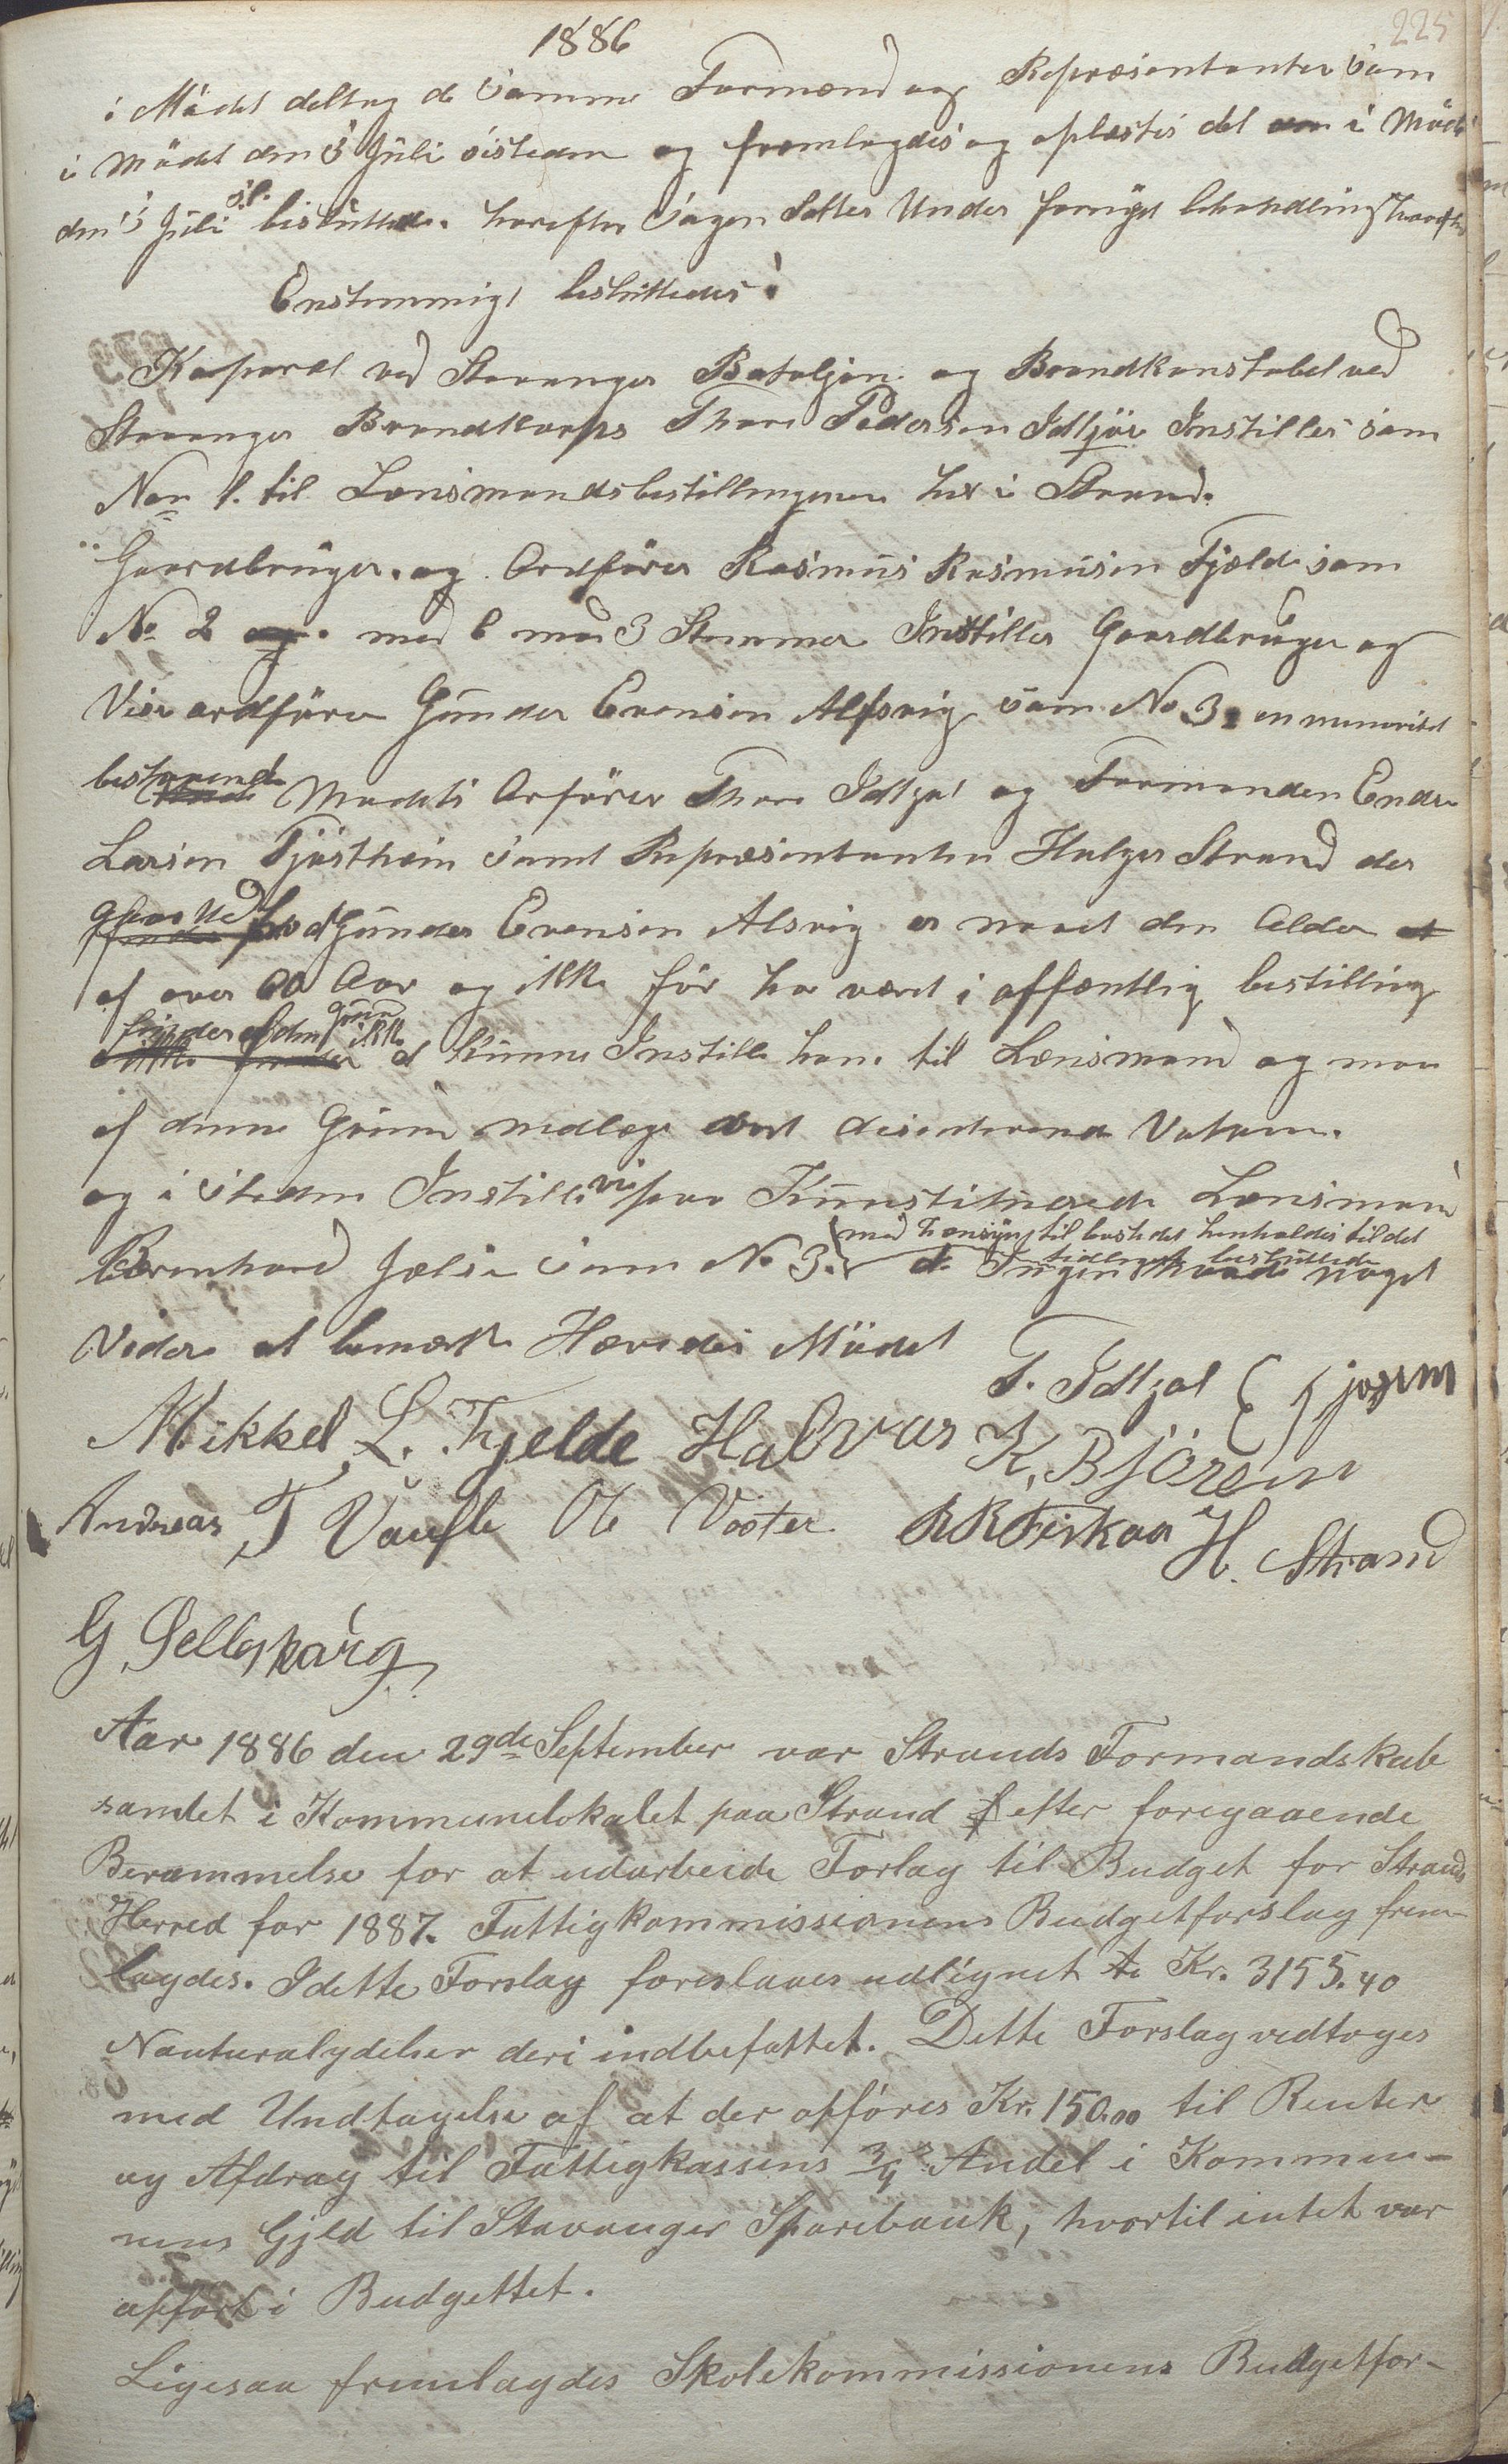 1886
225
i Mödet deltog de samme Formænd og Repræsentanter som
i Mödet den 3 Juli sisteden og fremlagdes og oplæstes det i Möde
den 3 Juli s.l. besluttede. hvorefter Sagen settes Under fornyet behandling hvorefter
Enstemmigt besluttedes:
Koporal ved Stavanger Bataljon og Brandkonstabel ved
Stavanger Brandkorps Thore Pedersen Idtjör Instilles som
Non 1. til Lensmandsbestillingenen her i Strand.
Gaardbruger. og Ordförer Rasmus Rasmusen Fjelde som
No 2 med 6 mod 3 Stemmer Instilles Gaardbruger og
Vise ordförer Gunder Evensen Alsvig som No 3. en minoritet
bestaaende Mødets Orförer Thore Idtjøl og Formanden Endre
Larsen Tjöstheim samt Repræsentanten Holger Strand der
Gunder Evensen Alsvig er naaet den Alder
af over 60 Aar og ikke för har været i offentlig bestilling
finder af den grund ikke at kunne Instille ham til Lensmand og maa
af denne Grund nedlæge vort disenterende Votum.
og i steden Instille vie paa Kunstituerede Lensmand
Bernhard Jælse som No 3. med Hensyn til bostedet henholdes til det
tidligere besluttede
Ingen havde noget
Videre at bemærke Hævedes Mödet
T. Idtjøl E Tjosem
Mikkel L. Fjelde Halvar K. Björeim
Andreas T Vaule Ole Voster R R Fiskaa H. Strand
G Selleskarg
Aar 1886 den 29de September var Strands Formandskab
samlet i Kommunelokalet paa Strand efter foregaaende
Berammelse for at udarbeide Forlag til Budget for Strands
Herred for 1887. Fattigkommissionens Budgetforslag frem-
lagdes. I dette Forslag foreslaaes udlignet Kr. 3155.40
Nauturalydelser deri indbefattet. Dette Forslag vedtoges
med Undtagelse af at der opföres Kr. 150.00 til Renter
og Afdrag til Fattigkassens 3/4 Andel i Kommu-
nens Gjeld til Stavanger Sparebank, hvortil intet var
opfört i Budgettet.
Ligesaa fremlagdes Skolekommissionens Budgetfor-